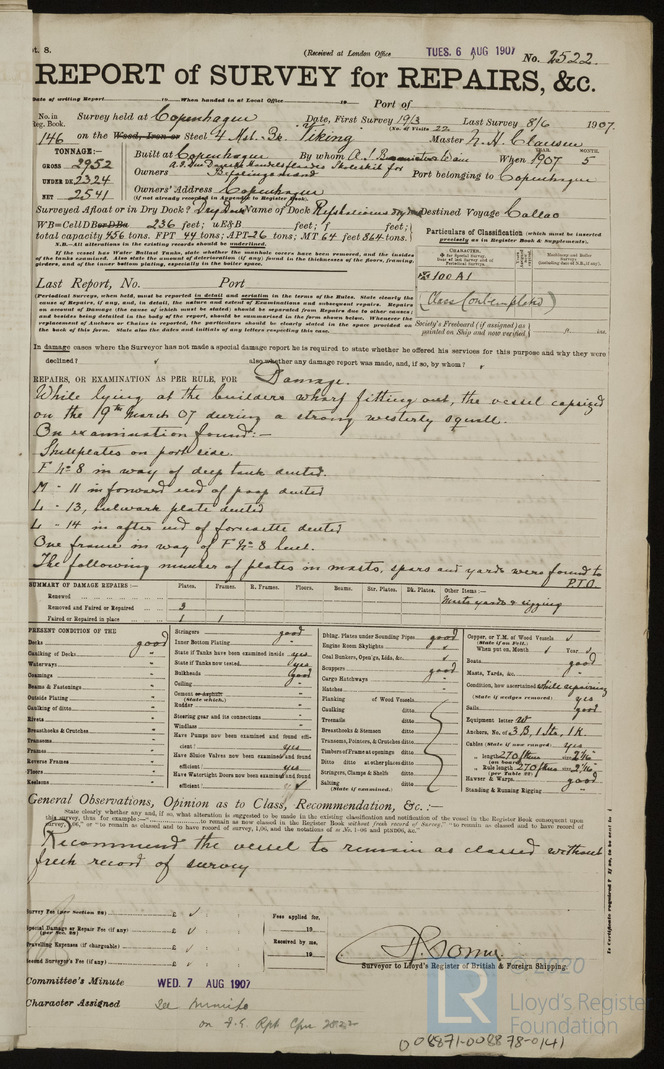 t. 8.
(Received at London Office TUES. 6 AUG 1907 No. 2522
REPORT of SURVEY for REPAIRS, &c.
Date of writing Report 19 When handed in at Local Office 19 Port of
No. in Reg. Book. Survey held at Copenhagen Date, First Survey 19/3 Last Survey 8/6 1907.
(No. of Visits 22)
146 on the Wood, Iron or Steel 4 Mst. Bk. Viking Master N. H. Clausen
TONNAGE:—
GROSS 2952
UNDER DK. 2324
NET 2541
Built at Copenhagen By whom A/S Burmeister & Wain When 1907 YEAR. MONTH. 5
Owners Port belonging to Copenhagen
Owners' Address Copenhagen
(if not already recorded in Appendix to Register Book.)
Surveyed Afloat or in Dry Dock? Dry Dock Name of Dock Destined Voyage Callao
WB=CellDB or DBa 236 feet; uE&B feet; f feet;
total capacity 456 tons. FPT 44 tons; APT 26 tons; MT 64 feet 864 tons.
N.B.—All alterations in the existing records should be underlined.
If the vessel has Water Ballast Tanks, state whether the manhole covers have been removed, and the insides
of the tanks examined. Also state the amount of deterioration (if any) found in the thicknesses of the floors, framing,
girders, and of the inner bottom plating, especially in the boiler space.
Particulars of Classification (which must be inserted
precisely as in Register Book & Supplements.
CHARACTER.
100 A1
(Class Contemplated)
Society's Freeboard (if assigned) as
painted on Ship and now verified ft. ins.
Last Report, No. Port
(Periodical Surveys, when held, must be reported in detail and seriatim in the terms of the Rules. State clearly the
cause of Repairs, if any, and, in detail, the nature and extent of Examinations and subsequent repairs. Repairs
on account of Damage (the cause of which must be stated) should be separated from Repairs due to other causes;
and besides being detailed in the body of the report, should be summarized in the form shown below. Whenever the
replacement of Anchors or Chains is reported, the particulars should be clearly stated in the space provided on
the back of this form. State also the dates and initials of any letters respecting this case.
In damage cases where the Surveyor has not made a special damage report he is required to state whether he offered his services for this purpose and why they were
declined? also whether any damage report was made, and, if so, by whom?
REPAIRS, OR EXAMINATION AS PER RULE, FOR Damage.
While lying at the builders wharf fitting out, the vessel capsized
on the 19th March 07 during a strong westerly squall.
On examination found:—
Shellplates on port side.
F No 8 in way of deep tank dented.
M - 11 in forward end of poop dented
L - 13, bulwark plate dented
L - 14 in after end of forecastle dented
One frame in way of F No 8 bent.
The following number of plates in masts, spars and yards were found to
P.T.O.
SUMMARY OF DAMAGE REPAIRS:— Plates. Frames. R. Frames. Floors. Beams. Str. Plates. Dk. Plates. Other Items:—
Renewed Masts yards & rigging
Removed and Faired or Repaired 3
Faired or Repaired in place 1 1
PRESENT CONDITION OF THE
Decks good
Caulking of Decks "
Waterways "
Coamings "
Beams & Fastenings "
Outside Plating "
Caulking of ditto "
Rivets "
Breasthooks & Crutches "
Transoms "
Frames "
Reverse Frames "
Floors "
Keelsons "
Stringers good
Inner Bottom Plating "
State if Tanks have been examined inside yes
State if Tanks now tested yes
Bulkheads good
Ceiling "
Cement or Asphalt "
(State which.)
Rudder "
Steering gear and its connections "
Windlass "
Have Pumps now been examined and found efficient? yes
Have Sluice Valves now been examined and found efficient? yes
Have Watertight Doors now been examined and found efficient?
Dblng. Plates under Sounding Pipes good
Engine Room Skylights
Coal Bunkers, Open'gs, Lids, &c.
Scuppers good
Cargo Hatchways "
Hatches "
Planking of Wood Vessels
Caulking ditto
Treenails ditto
Breasthooks & Stemson ditto
Transoms, Pointers, & Crutches ditto
Timbers of Frame at openings ditto
Ditto ditto at other places ditto
Stringers, Clamps & Shelfs ditto
Salting ditto
(State if examined.)
Copper, or Y.M. of Wood Vessels
(State if on Felt.)
When put on, Month Year
Boats good
Masts, Yards, &c. "
Condition, how ascertained while repairing
(State if wedges removed) yes
Sails good
Equipment letter W
Anchors, No. of 3 B, 1 Sta, 1 K.
Cables (State if now ranged) yes
" length 270 fms size 2 2/16
(on board)
" Rule length 270 fms size 2 2/16
(per Table 22)
Hawser & Warps good
Standing & Running Rigging "
General Observations, Opinion as to Class, Recommendation, &c.:—
State clearly whether any, and if so, what alteration is suggested to be made in the existing classification and notification of the vessel in the Register Book consequent upon
Recommend the vessel to remain as classed without
fresh record of survey
Survey Fee (per Section 28) £
Special Damage or Repair Fee (if any) £
(per Sec. 28)
Travelling Expenses (if chargeable) £
Second Surveyor's Fee (if any) £
Fees applied for,
19
Received by me,
19
Surveyor to Lloyd's Register of British & Foreign Shipping.
Committee's Minute WED. 7 AUG 1907
Character Assigned See minute
on F.E. Rpt Cpn 2522
© 2020
LR
Lloyd's Register
Foundation
008871-008878-0141